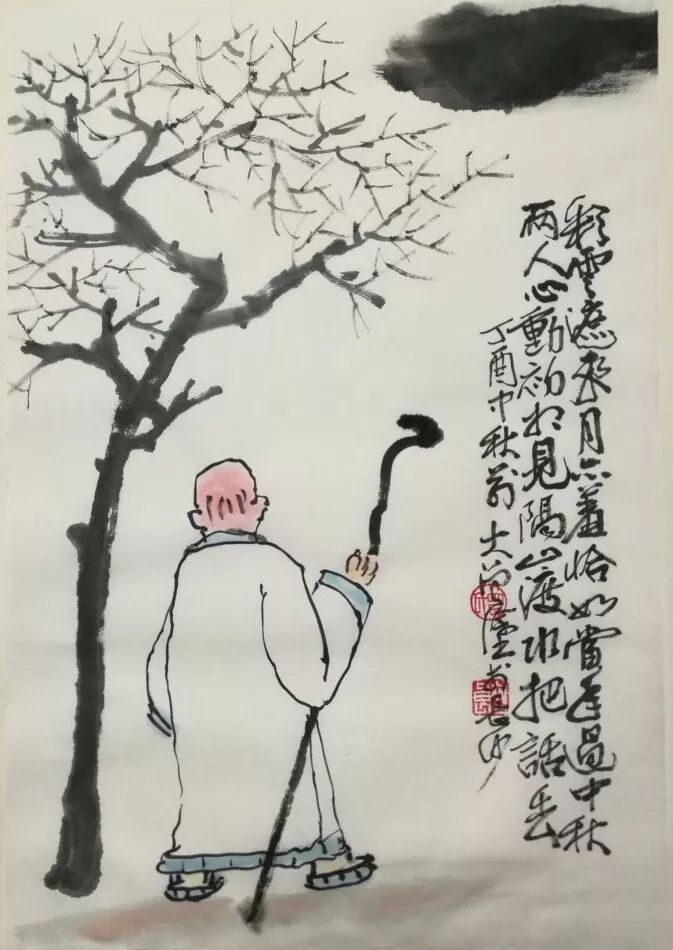 彩雲遮來月亦羞恰如當年過中秋
兩人心動初相見隔山渡水把話丢
丁酉中秋前大長沙